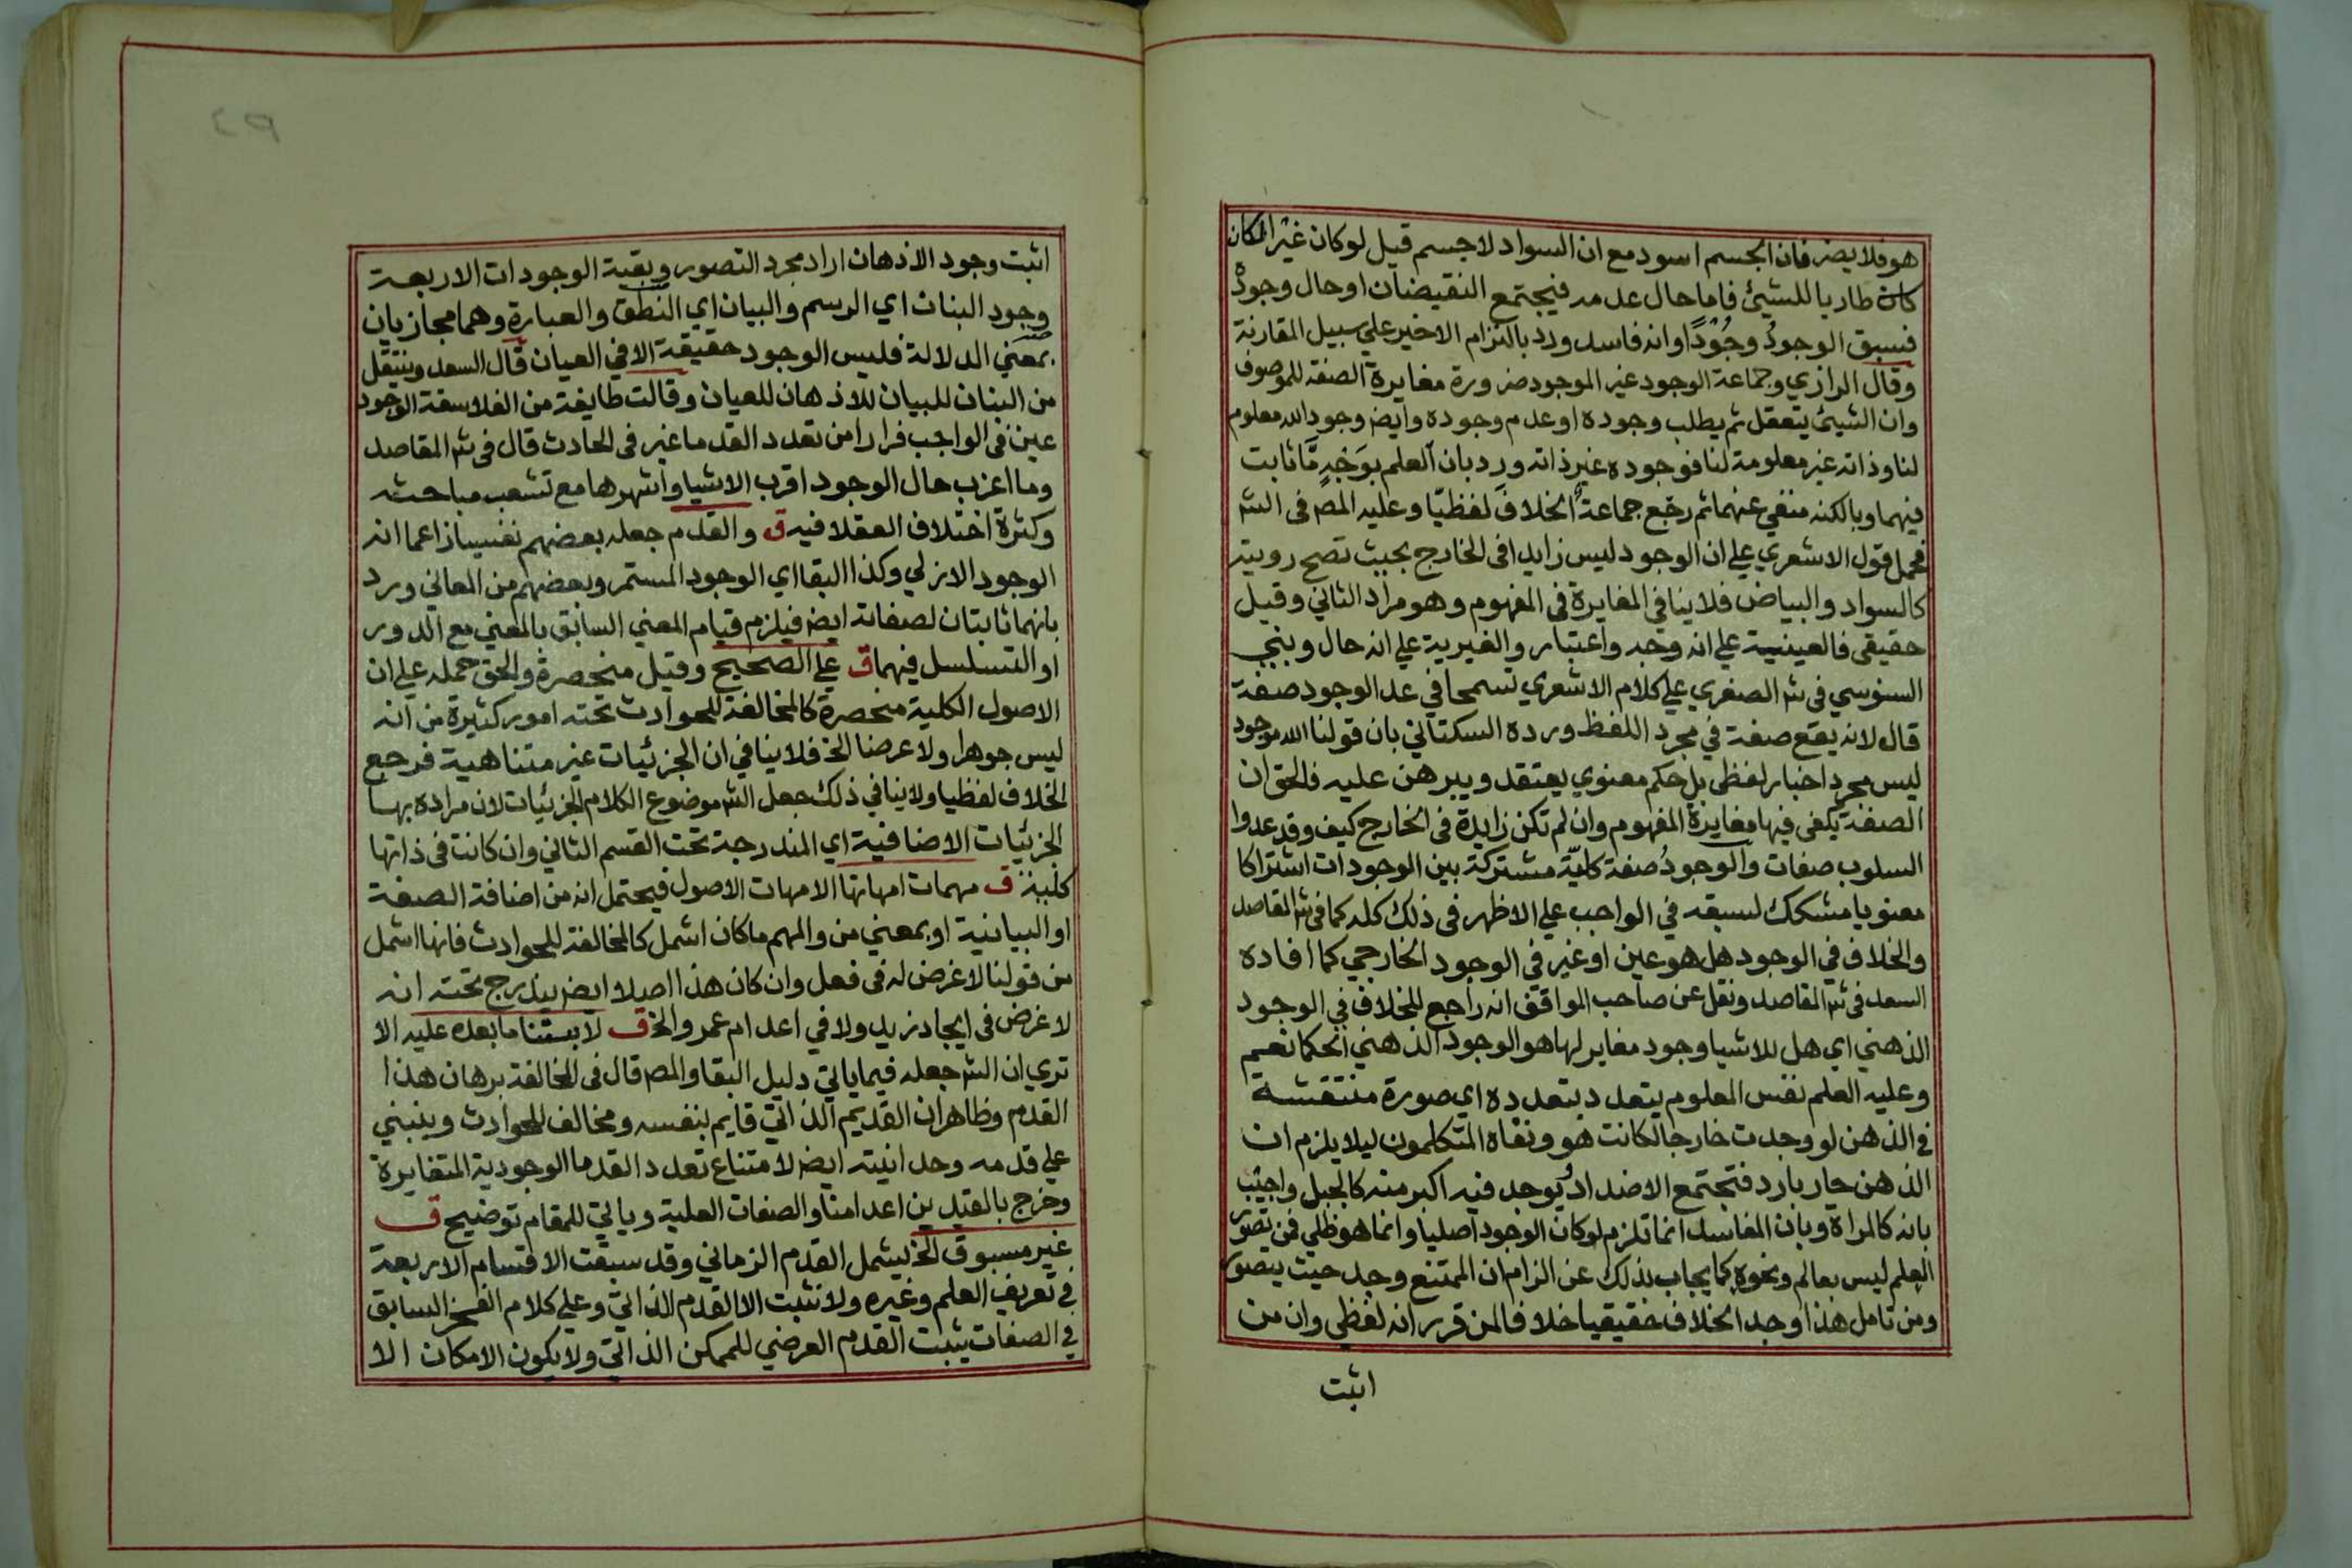 هو فلا يضر فان الجسم اسود مع ان السواد لا جسم قيل لو كان غيرا لكان
كان طاريا للشيئ فاما حال عدمه فيجتمع النقيضان او حال وجوده
فسبق الوجودُ وجُودًا وانه فاسد ورد بالتزام الاخير علي سبيل المقارنة
وقال الرازي وجماعة الوجود غير الموجود ضرورة مغايرة الصفة للموصوف
وان الشيئ يتعقل ثم يطلب وجوده او عدم وجوده وايض وجود الله معلوم
لنا وذاته غير معلومة لنا فوجوده غير ذاته ورد بان العلم بوَجْهٍ مَّا ثابت
فيهما وبالكنه منفي عنهما ثم رجّع جماعةٌ الخلافَ لفظيّا وعليه المص في الش
فحمل قول الاشعري علي ان الوجود ليس زايدا في الخارج بحيث تصح رويته
كالسواد والبياض فلا ينافي المغايرة في المفهوم وهو مراد الثاني وقيل
حقيقي فالعينية علي انه وجه واعتبار والغيرية علي انه حال وبني
السنوسي في ش الصغري علي كلام الاشعري تسمحا في عد الوجود صفة
قال لانه يقع صفة في مجرد اللفظ ورده السكتاني بان قولنا الله موجود
ليس مجرد اخبار لفظي بل حكم معنوي يعتقد ويبرهن عليه فالحق ان
الصفة يكفي فيها مغايرة المفهوم وان لم تكن زايدة في الخارج كيف وقد عدوا
السلوب صفات والوجودُ صفة كليّة مشتركة بين الوجودات اشتراكا
معنويا مشكك لسبقه في الواجب علي الاظهر في ذلك كله كما في ش المقاصد
والخلاف في الوجود هل هو عين او غير في الوجود الخارجي كما افاده
السعد في ش المقاصد ونقل عن صاحب المواقف انه راجع للخلاف في الوجود
الذهني اي هل للاشيا وجود مغاير لها هو الوجود الذهني الحكما نعم
وعليه العلم نفس المعلوم يتعدد بتعدده اي صورة منتقشة
في الذهن لو وجدت خارجا لكانت هو ونفاه المتكلمون ليلا يلزم ان
الذهن حار بارد فتجتمع الاضداد ويوجد فيه اكبر منه كالجبل واجيب
بانه كالمراة وبان المفاسد انما تلزم لو كان الوجود اصليا وانما هو ظلي فمن تصور
العلم ليس بعالم ونحوه كما يجاب بذلك عن الزام ان الممتنع وجد حيث يتصور
ومن تامل هذا وجد الخلاف حقيقيا خلافا لمن قرر انه لفظي وان من
اثبت
٤٩
اثبت وجود الاذهان اراد مجرد التصور وبقية الوجودات الاربعة
وجود البنان اي الرسم والبيان اي النطق والعبارة وهما مجازيان
بمعني الدلالة فليس الوجود حقيقة الا في العيان قال السعد وينتقل
من البنان للبيان للاذهان للعيان وقالت طايفة من الفلاسفة الوجود
عين في الواجب فرارا من تعدد القدما غير في الحادث قال في ش المقاصد
وما اغرب حال الوجود اقرب الاشيا واشهرها مع تشعب مباحثه
وكثرة اختلاف العقلا فيه ق والقدم جعله بعضهم نفسيا زاعما انه
الوجود الازلي وكذا البقا اي الوجود المستمر وبعضهم من المعاني ورد
بانهما ثابتان لصفاته ايض فيلزم قيام المعني السابق بالمعني مع الدور
او التسلسل فيهما ق علي الصحيح وقيل منحصرة والحق حمله علي ان
الاصول الكلية منحصرة كالمخالفة للحوادث تحته امور كثيرة من انه
ليس جوهرا ولا عرضا الخ فلا ينافي ان الجزئيات غير متناهية فرجع
الخلاف لفظيا ولا ينافي ذلك جعل الش موضوع الكلام الجزئيات لان مراده بها
الجزئيات الاضافية اي المندرجة تحت القسم الثاني وان كانت في ذاتها
كلية ق مهمات امهاتها الامهات الاصول فيحتمل انه من اضافة الصفة
او البيانية او بمعني من والمهم ما كان اشمل كالمخالفة للحوادث فانها اشمل
من قولنا لا غرض له في فعل وان كان هذا اصلا ايض يندرج تحته انه
لا غرض في ايجاد زيد ولا في اعدام عمرو الخ ق لابتنا ما بعده عليه الا
تري ان الش جعله فيما ياتي دليل البقا والمص قال في المخالفة برهان هذا
القدم وظاهر ان القديم الذاتي قايم بنفسه ومخالف للحوادث وينبني
علي قدمه وحدانيته ايض لامتناع تعدد القدما الوجودية المتغايرة
وخرج بالقيدين اعدامنا والصفات العلية وياتي للمقام توضيح ق
غير مسبوق الخ ليشمل القدم الزماني وقد سبقت الاقسام الاربعة
في تعريف العلم وغيره ولا نثبت الا القدم الذاتي وعلي كلام الفخر السابق
في الصفات يثبت القدم العرضي للممكن الذاتي ولا يكون الامكان الا